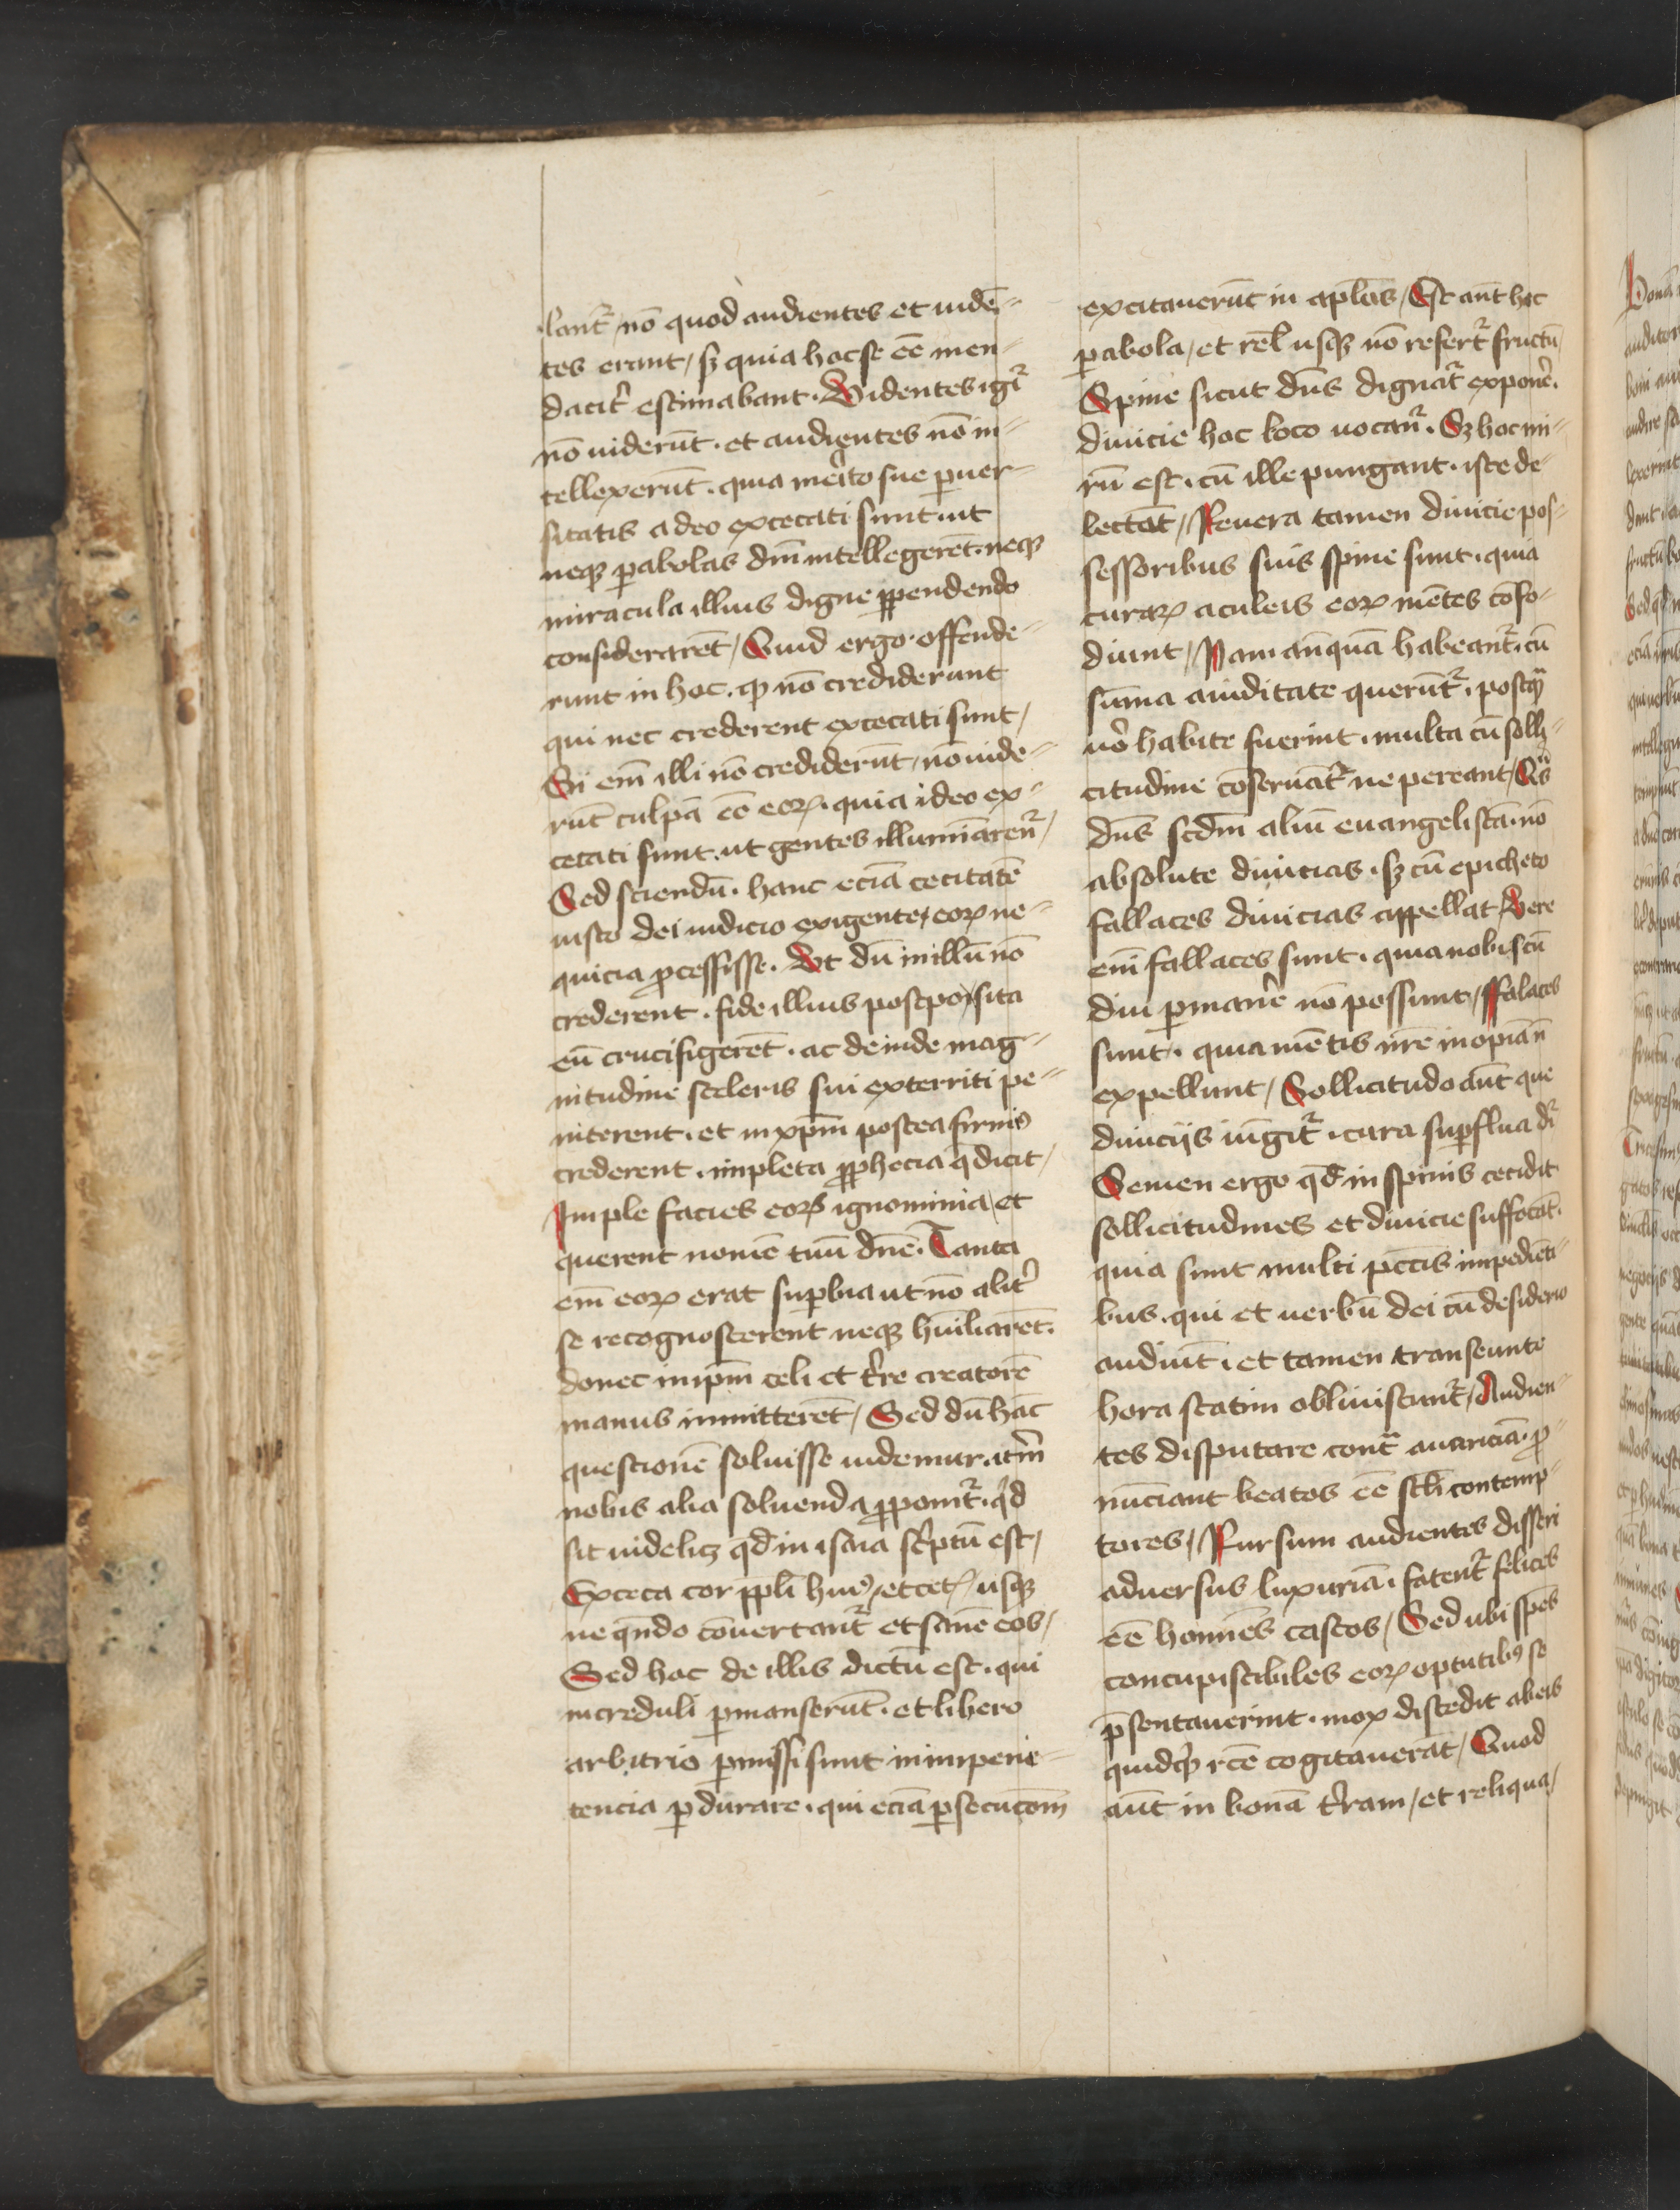 lant᷑ nō quod audientes et uidē-
tes erant / sꝫ quia hoc se ēe men-
dacit᷑ estimabant. Videntes igit᷑
nō uiderūt. et audientes nō in-
tellexerūt. quia me᷑ito sue ꝑuer-
sitatis a deo excecati sunt. ut
neqꝫ ꝑabolas dn̄i intellegerēt. neqꝫ
miracula illius digne ꝑpendendo
considerarēt / Quid ergo offende-
runt in hoc. qꝫ nō crediderunt
qui nec crederent excecati sunt /
Si em̄ illi nō crediderūt / nō uide-
rūt culpā ēe eoꝝ. quia ideo ex-
cecati sunt. ut gentes illumīarent᷑ /
Sed sciendū. hanc eciā cecitatē
iusto dei iudicio exigente / eoꝝ ne-
quicia ꝓcessisse. Vt dū in illū nō
crederent. fide illius postposita
eū crucifigerēt. ac deinde mag-
nitudine sceleris sui exterriti pe-
niterent. et in xp̄m postea firmiꝰ
crederent. impleta ꝓphecia q̄ dicit /
Imple facies eoꝝ ignominia / et
querent nomē tuū dn̄e. Tanta
em̄ eoꝝ erat suꝑbia ut nō alit᷑
se recognoscerent neqꝫ hūiliarēt.
donec in ip̄m celi et t᷑re creatorē
manus inmitterēt / Sed dū hāc
questionē soluisse uidemur. itm̄
nobis alia soluenda ꝓponit᷑. qͥd
sit uidelicꝫ qd̄ in isaia sc᷑ptū est /
Exceca cor ppl̄i huiꝰ / et cetꝝ usqꝫ
ne qn̄do cōuertant᷑ et sanē eos /
Sed hoc de illis dictū est. qui
increduli ꝑmanserūt. et libero
arbitrio ꝑmissi sunt in inpeni-
tencia ꝑdurare. qui eciā ꝑsecucōm
excitauerūt in apl̄os / Est aūt hec
ꝑabola / et rel̄ usqꝫ nō refert᷑ fructū /
Spine sicut dn̄s dignat᷑ expone᷑.
diuicie hoc loco uocant᷑. Sꝫ hoc mi-
rū est. cū ille pungant. iste de-
lectāt / Reuera tamen diuicie pos-
sessoribus suis spine sunt. quia
curaꝝ aculeis eoꝝ mētes cōfo-
diunt / Nam anq̄uā habeant᷑. cū
sūma auiditate querūt᷑. postqᷓ
uo᷑ habite fuerint. multa cū solli-
citudine cōseruāt᷑ ne pereant /
dn̄s scdm̄ aliū euangelistā. nō
absolute diuicias. sꝫ cū epitheto
fallaces diuicias appellat / Vere
em̄ fallaces sunt. quia nobiscū
diu ꝑmane᷑ nō possunt / Falaces
sunt. quia mētis nr̄e inopiā n̄
expellunt / Sollicitudo aūt que
diuicijs iūgit᷑. cura suꝑflua dr᷑
Semen ergo qd̄ in spinis cecidit
sollicitudines et diuicie suffocāt.
quia sunt multi pctīs impediēti-
bus. qui et uerbū dei cū desiderio
audiūt. et tamen transeunte
hora statim obliuiscunt᷑ / Audien-
tes disputare contᷓ auariciā. ꝓ-
nūciant beatos ēe scl̄i contemp-
tores / Rursum audientes disseri
aduersus luxuriā. fatent᷑ felices
ēe homīes castos / Sed ubi spēs
concupiscibiles eoꝝ optutibꝰ se
p̄sentauerint. mox discedit ab eis
quidqͥd rc̄e cogitauerāt / Quod
aūt in bonā t᷑ram / et reliqua /